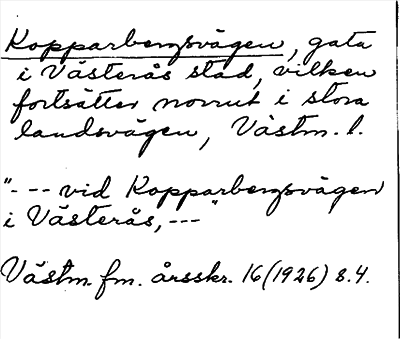 Kopparbergsvägen, gata
i Västerås stad, vilken
fortsätter norrut i stora
landsvägen, Västm. l.
"--- vid Kopparbergsvägen
i Västerås, ---"
Västm. fm. årsskr. 16 (1926) s. 4.